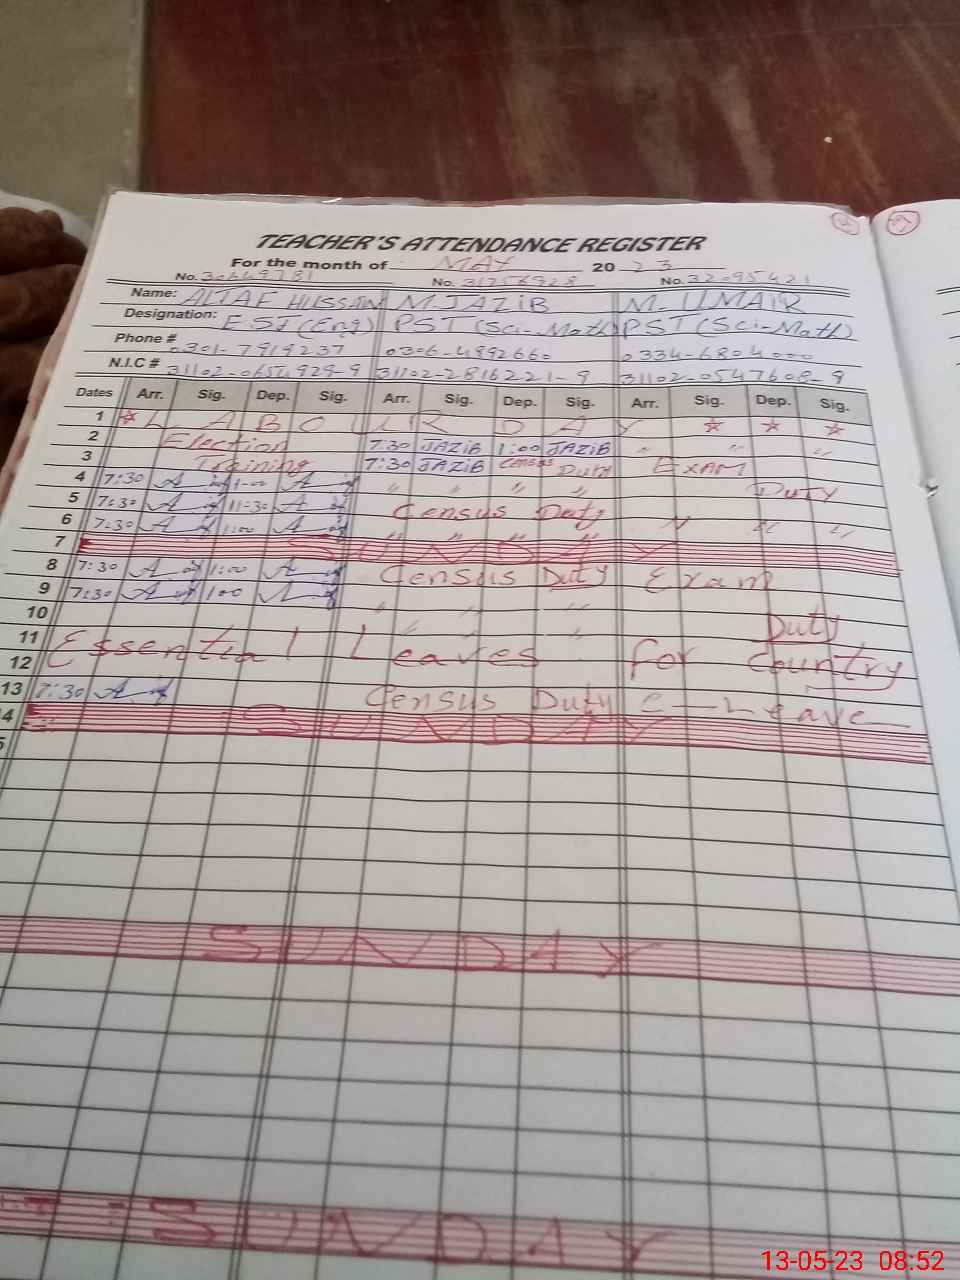 TEACHER'S ATTENDANCE REGISTER
For the month of MAY 20 23
No. 30649781 No. 31756928 No. 32095421
Name: ALTAF HUSSAIN M.JAZIB M. UMAIR
Designation: EST (Eng) PST (Sci-Math) PST (Sci-Math)
Phone # 0301-7919237 0306-4992660 0334-6804000
N.I.C # 31102-0654929-9 31102-2816221-9 31102-0547608-9
Dates Arr. Sig. Dep. Sig. Arr. Sig. Dep. Sig. Arr. Sig. Dep. Sig.
1 * L A B O U R D A Y * * *
2 Election 7:30 JAZIB 1:00 JAZIB " "
3 Training 7:30 JAZIB Census Duty EXAM
4 7:30 1-00 " " " " Duty
5 7:30 11-30 Census Duty
6 7:30 1:00 " " " " " "
7 SUNDAY
8 7:30 1:00 Census Duty Exam
9 7:30 1:00
10 " " " Duty
11 " " "
12 Essential Leaves for Country
13 7:30 Census Duty C-Leave
14 SUNDAY
5
SUNDAY
SUNDAY
13-05-23 08:52